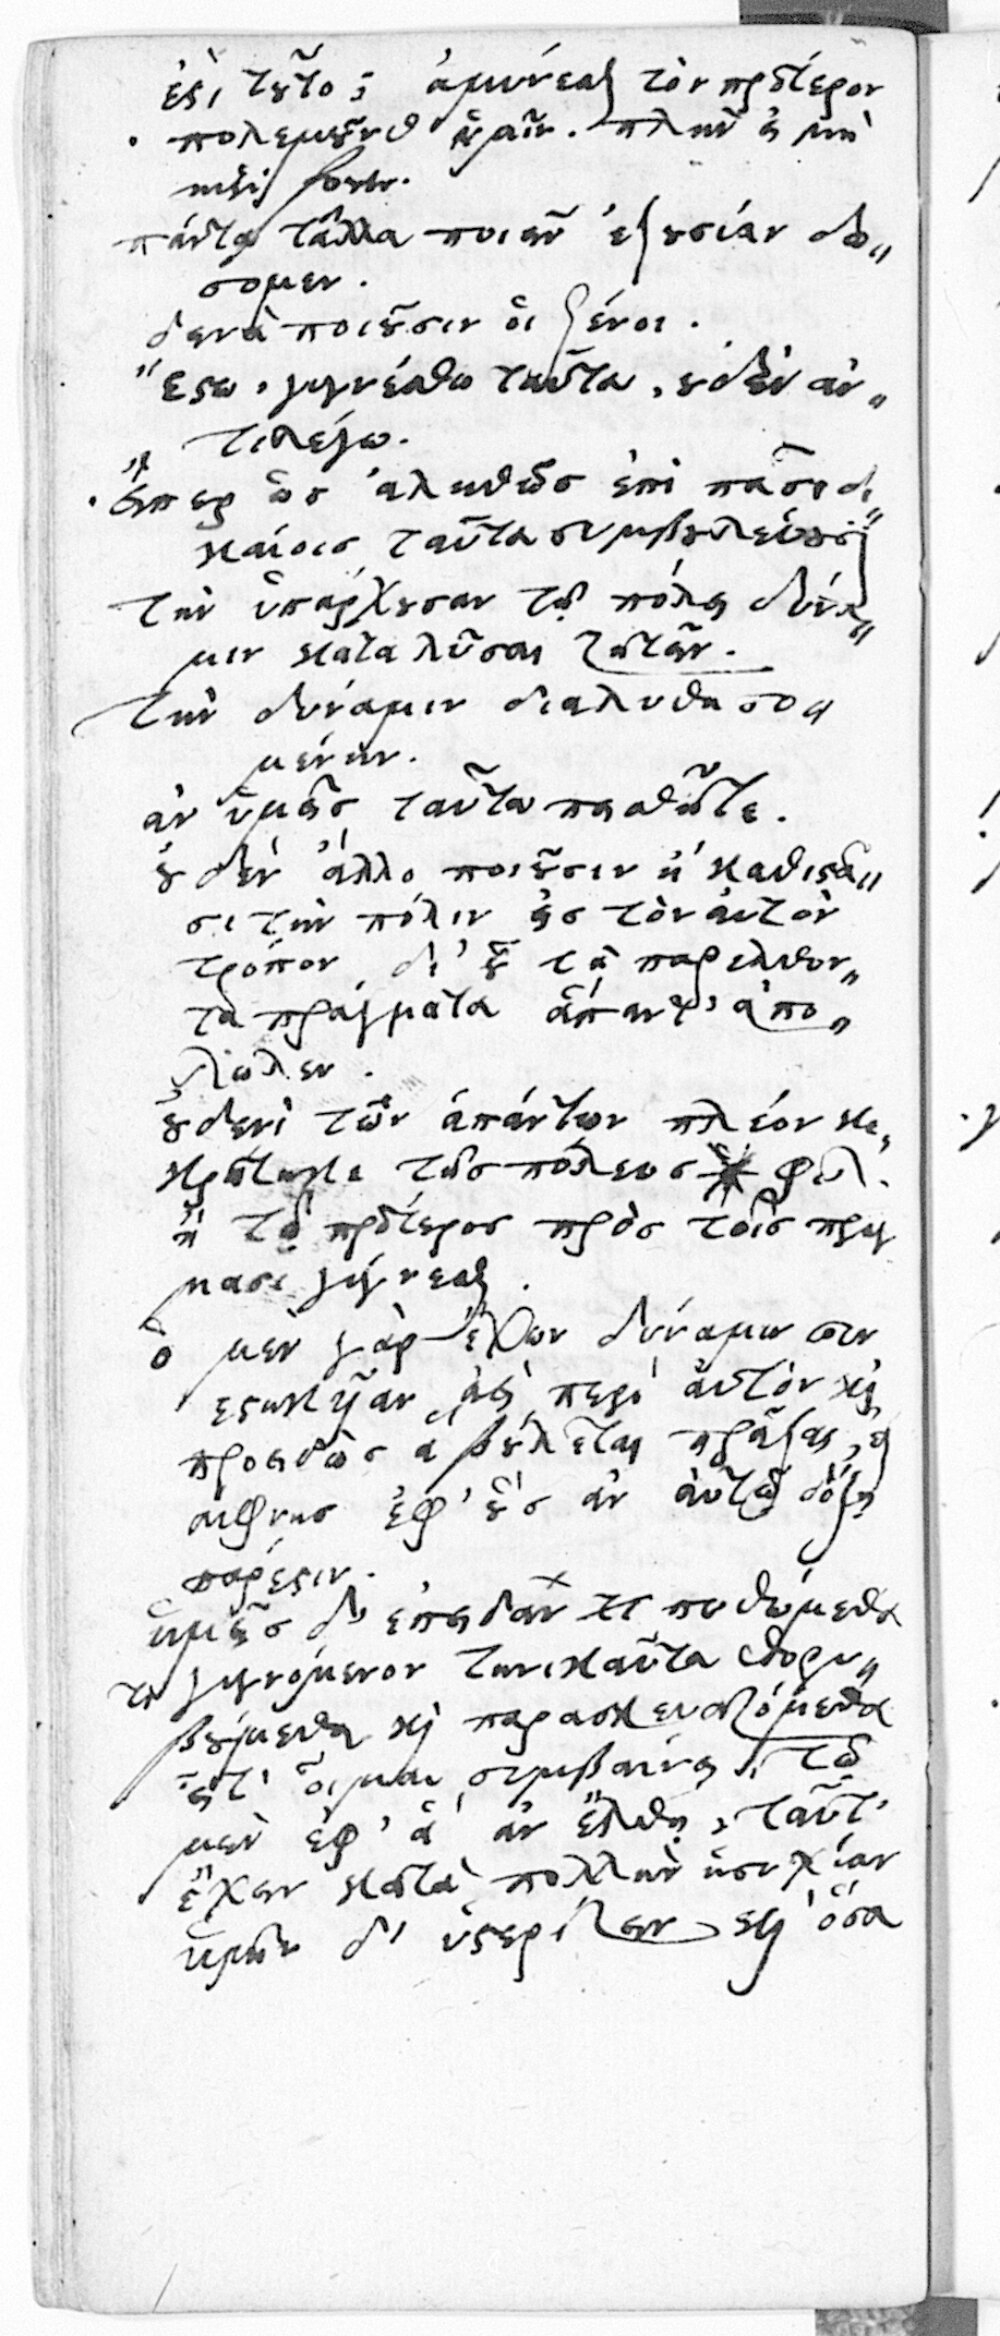 ἐστὶ τοῦτο; ἀμύνεσθαι τὸν πρότερον
πολεμοῦνθ' ἡμῖν. πλὴν εἰ μὴ
nisi forte.
πάντα τἄλλα ποιεῖν ἐξουσίαν δώ„
σομεν.
δεινὰ ποιοῦσιν οἱ ξένοι.
Ἔστω, γιγνέσθω ταῦτα, οὐδὲν ἀν„
τιλέγω.
εἴπερ ὡς ἀληθῶς ἐπὶ πᾶσι δι„
καίοις ταῦτα συμβουλεύουσι
τὴν ὑπάρχουσαν τῇ πόλει δύνα„
μιν καταλῦσαι ζητεῖν.
τὴν δύναμιν διαλυθησο„
μένην.
ἂν ὑμεῖς ταῦτα πεισθῆτε.
οὐδὲν ἄλλο ποιοῦσιν ἢ καθιστᾶ„
σι τὴν πόλιν εἰς τὸν αὐτὸν
τρόπον δι' οὗ τὰ παρελθόν„
τα πράγματα ἅπαντ' ἀπο„
λώλεν.
οὐδενὶ τῶν ἁπάντων πλέον κε„
κράτηκε τῆς πόλεως Φίλ.
ἢ τῷ πρότερος πρὸς τοῖς πράγ
μασι γίγνεσθαι.
ὁ μὲν γὰρ ἔχων δύναμιν συν
εστηκυῖαν ἀεὶ περὶ αὑτὸν καὶ
προειδὼς ἃ βούλεται πρᾶξαι, ἐξ
αίφνης ἐφ' οὓς ἂν αὐτῷ δόξῃ
πάρεστιν.
ἡμεῖς δ' ἐπειδάν τι πυθώμεθα
γιγνόμενον τηνικαῦτα θορυ„
βούμεθα καὶ παρασκευαζόμεθα
εἶτ' οἶμαι συμβαίνει, τῷ
μὲν ἐφ' ἃ ἂν ἔλθῃ, ταῦτ'
ἔχειν κατὰ πολλὴν ἡσυχίαν
ἡμῖν δ' ὑστερίζειν καὶ ὅσα